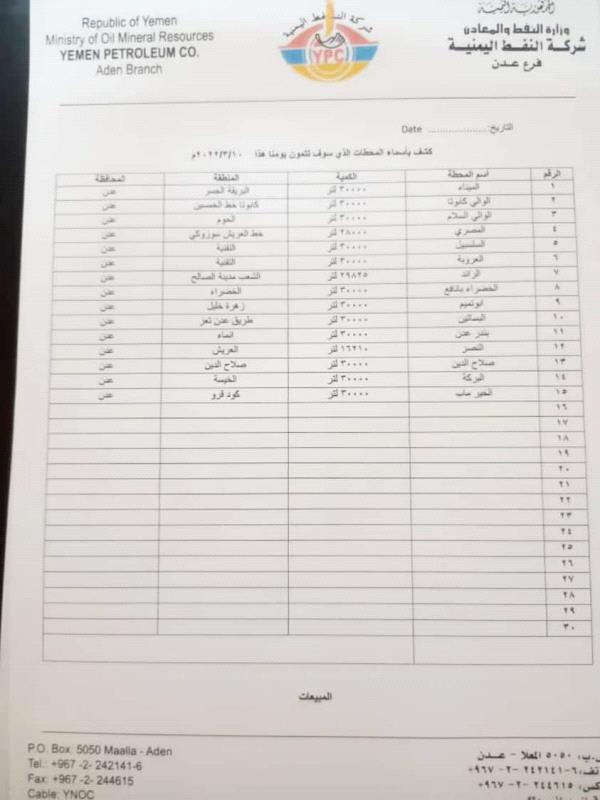 Republic of Yemen
Ministry of Oil Mineral Resources
YEMEN PETROLEUM CO.
Aden Branch
شركة النفط اليمنية
YPC
الجمهورية اليمنية
وزارة النفط والمعادن
شركة النفط اليمنية
فرع عدن
التاريخ: .................... Date
كشف بأسماء المحطات الذي سوف تتمون يومنا هذا ٢٠٢٢/٣/١٠م
الرقم اسم المحطة الكمية المنطقة المحافظة
١ الميناء ٣٠٠٠٠ لتر البريقة الجسر عدن
٢ الوالي كابوتا ٣٠٠٠٠ لتر كابوتا خط الخمسين عدن
٣ الوالي السلام ٣٠٠٠٠ لتر الحوم عدن
٤ المصري ٢٨٠٠٠ لتر خط العريش سوزوكي عدن
٥ السلسبيل ٣٠٠٠٠ لتر التقنية عدن
٦ العروبة ٣٠٠٠٠ لتر التقنية عدن
٧ الرائد ٢٩٨٢٥ لتر الشعب مدينة الصالح عدن
٨ الخضراء بانافع ٣٠٠٠٠ لتر الخضراء عدن
٩ ابوتميم ٣٠٠٠٠ لتر زهرة خليل عدن
١٠ البساتين ٣٠٠٠٠ لتر طريق عدن تعز عدن
١١ بندر عدن ٣٠٠٠٠ لتر انماء عدن
١٢ النصر ١٦٢١٠ لتر العريش عدن
١٣ صلاح الدين ٣٠٠٠٠ لتر صلاح الدين عدن
١٤ البركة ٣٠٠٠٠ لتر الخيسة عدن
١٥ الحبر ماب ٣٠٠٠٠ لتر كود قرو عدن
١٦
١٧
١٨
١٩
٢٠
٢١
٢٢
٢٣
٢٤
٢٥
٢٦
٢٧
٢٨
٢٩
٣٠
المبيعات
P.O. Box: 5050 Maalla - Aden
Tel.: +967 -2- 242141-6
Fax: +967 -2- 244615
Cable: YNOC
ص.ب: ٥٠٥٠ المعلا - عدن
٦-٢٤٢١٤١ -٢- ٩٦٧+
٢٤٤٦١٥ -٢- ٩٦٧+